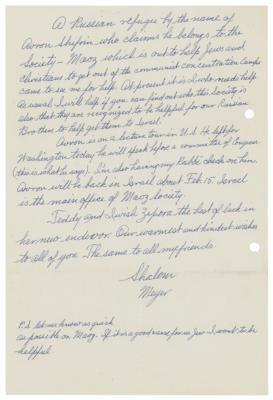 A Russian refugee by the name of
Avron Shifrin who claims he belongs to the
Society - Maoz which is out to help Jews and
Christians to get out of the communist concentration Camps
came to see me for help. At present it is I who needs help
As usual I will help if you can find out who this society is
also that they are recognized to be helpful for our Russian
Brothers to help get them to Israel.
Avron is on a lecture tour in U.S. He left for
Washington today he will speak before a committee of Congress
(this is what he says). I'm also having my Rabbi check on him.
Avron will be back in Israel about Feb. 15. Israel
is the main office of Maoz society.
Teddy and I wish Zepora the best of luck in
her new endeavor. Our warmest and kindest wishes
to all of you. The same to all my friends.
Shalom
Meyer
P.S. Let me know as quick
as possible on Maoz. If it is a good name for us Jew I want to be
helpful.